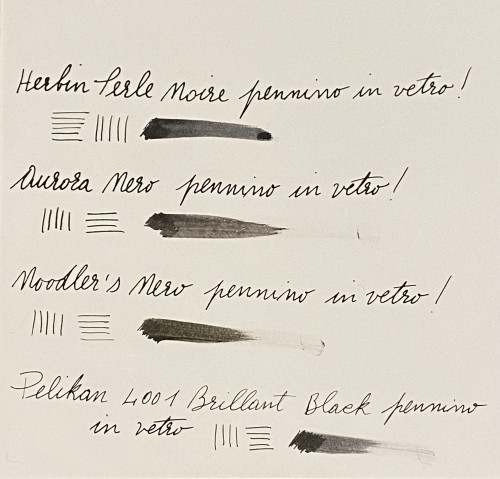 Herbin Perle Noire pennino in vetro!
Aurora Nero pennino in vetro!
Noodler's Nero pennino in vetro!
Pelikan 4001 Brillant Black pennino
in vetro